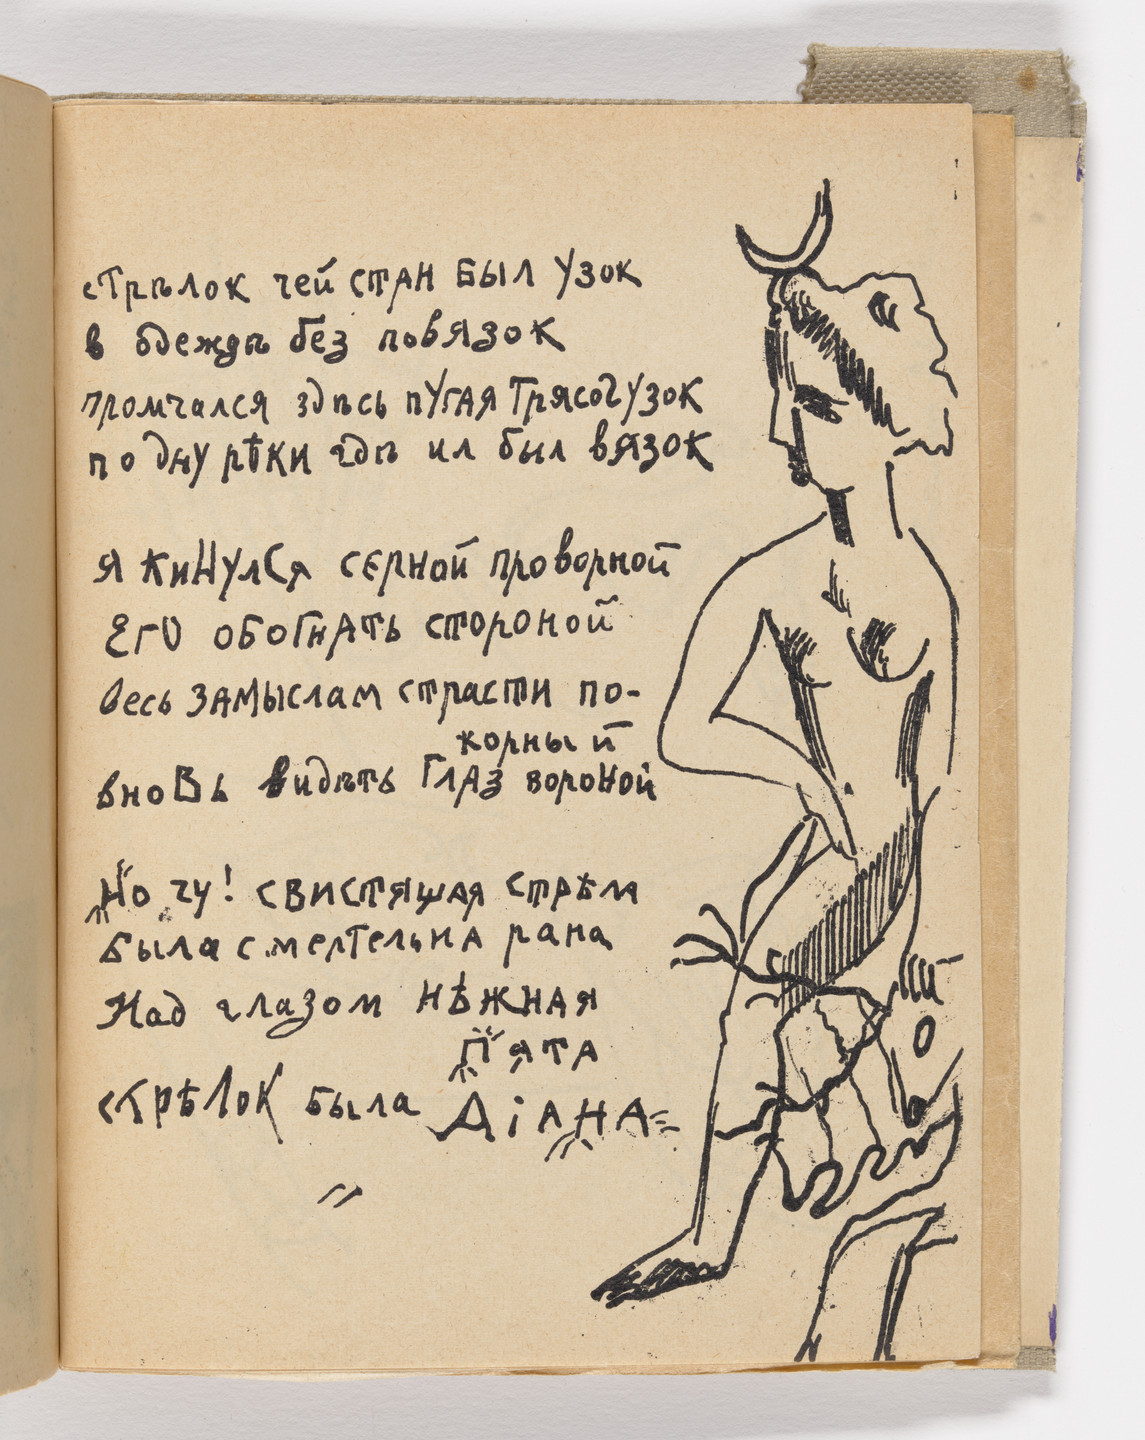 стрѣлок чей стан был узок
в одеждѣ без повязок
промчался здѣсь пугая трясогузок
по дну рѣки гдѣ ил был вязок
я кинулся серной проворной
Его обогнать стороной
весь замыслам страсти по-
корный
вновь видѣть глаз вороной
Но чу! свистящая стрѣла
была смертельна рана
Над глазом нѣжная
Пята
стрѣлок была Діана